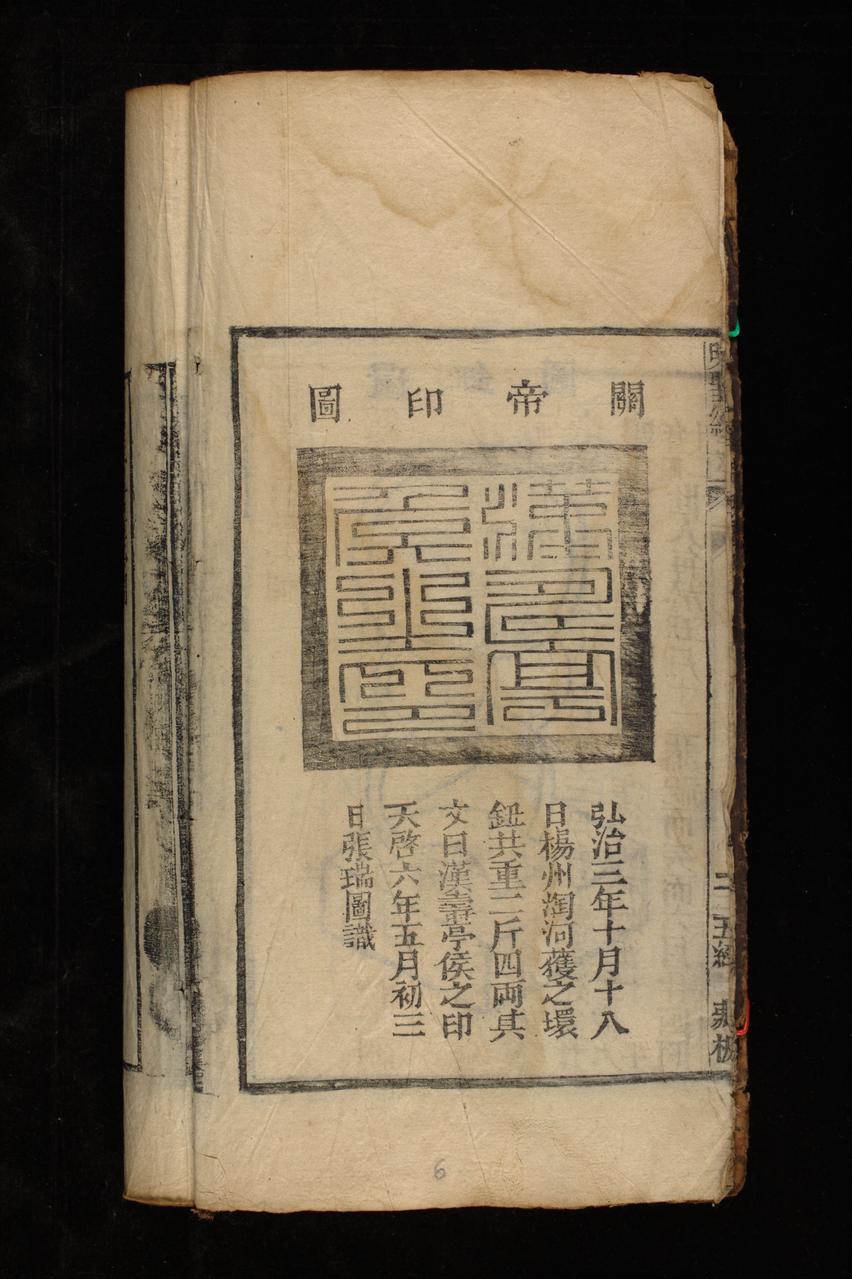 關帝印圖
漢壽亭
侯之印
弘治三年十月十八
日楊州淘河獲之環
鈕共重二斤四兩其
文曰漢壽亭侯之印
天啓六年五月初三
日張瑞圖識
6